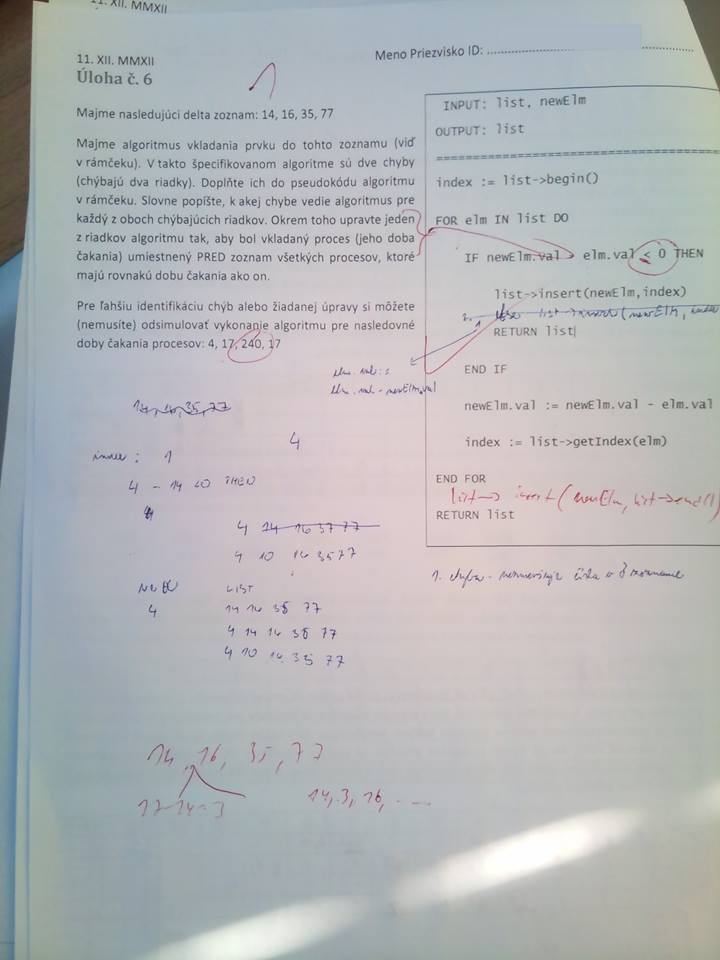 11. XII. MMXII
11. XII. MMXII
Meno Priezvisko ID:
Úloha č. 6
1
Majme nasledujúci delta zoznam: 14, 16, 35, 77
Majme algoritmus vkladania prvku do tohto zoznamu (viď
v rámčeku). V takto špecifikovanom algoritme sú dve chyby
(chýbajú dva riadky). Doplňte ich do pseudokódu algoritmu
v rámčeku. Slovne popíšte, k akej chybe vedie algoritmus pre
každý z oboch chýbajúcich riadkov. Okrem toho upravte jeden
z riadkov algoritmu tak, aby bol vkladaný proces (jeho doba
čakania) umiestnený PRED zoznam všetkých procesov, ktoré
majú rovnakú dobu čakania ako on.
Pre ľahšiu identifikáciu chýb alebo žiadanej úpravy si môžete
(nemusíte) odsimulovať vykonanie algoritmu pre nasledovné
doby čakania procesov: 4, 17, 240, 17
INPUT: list, newElm
OUTPUT: list
====================================
index := list->begin()
FOR elm IN list DO
IF newElm.val - elm.val < 0 THEN
list->insert(newElm,index)
RETURN list
END IF
newElm.val := newElm.val - elm.val
index := list->getIndex(elm)
END FOR
list-> insert(newElm, list->end())
RETURN list
elm.val - newElm.val
14, 16, 35, 77
4
index : 1
4 - 14 < 0 THEN
4
4 14 16 35 77
4 10 16 35 77
LIST
4 14 16 35 77
4 14 16 35 77
4 10 16 35 77
1. chyba -
14, 16, 35, 77
17-14=3
14, 3, 16,